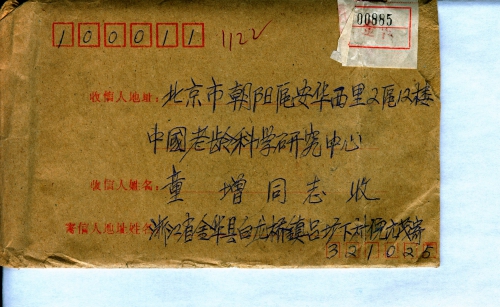 100011 1122
00985
收信人地址：北京市朝阳區安华西里2區12楼
中國老龄科学研究中心
收信人姓名：童增同志收
寄信人地址姓名 浙江省金华县白龙桥鎮吕坊下村
321025